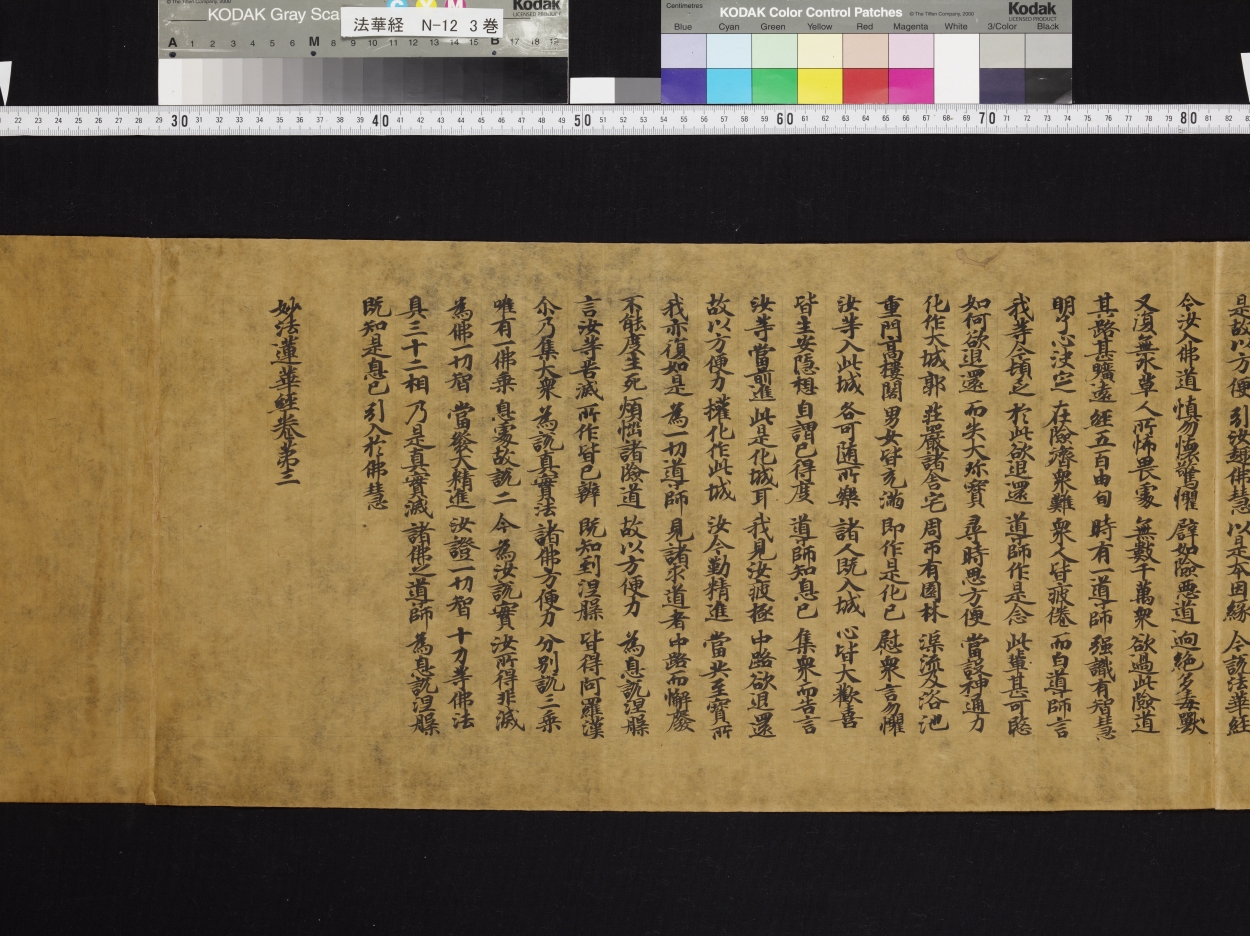 © The Tiffen Company, 2000
KODAK Gray Sca
C Y M
Kodak
LICENSED PRODUCT
法華経 N-12 3巻
A 1 2 3 4 5 6 M 8 9 10 11 12 13 14 15 B 17 18 19
Centimetres
KODAK Color Control Patches
© The Tiffen Company, 2000
Kodak
LICENSED PRODUCT
Blue Cyan Green Yellow Red Magenta White 3/Color Black
22 23 24 25 26 27 28 29 30 31 32 33 34 35 36 37 38 39 40 41 42 43 44 45 46 47 48 49 50 51 52 53 54 55 56 57 58 59 60 61 62 63 64 65 66 67 68 69 70 71 72 73 74 75 76 77 78 79 80 81 82
是故以方便 引汝趣佛慧 以是本因緣 今說法華經
令汝入佛道 慎勿懷驚懼 譬如險惡道 迥絕多毒獸
又復無水草 人所怖畏處 無數千萬衆 欲過此險道
其路甚曠遠 經五百由旬 時有一導師 强識有智慧
明了心決定 在險濟衆難 衆人皆疲惓 而白導師言
我等今頓乏 於此欲退還 導師作是念 此輩甚可愍
如何欲退還 而失大珎寶 尋時思方便 當設神通力
化作大城郭 莊嚴諸舍宅 周帀有園林 渠流及浴池
重門髙樓閣 男女皆充滿 即作是化已 慰衆言勿懼
汝等入此城 各可随所樂 諸人既入城 心皆大歡喜
皆生安隱想 自謂已得度 導師知息已 集衆而告言
汝等當前進 此是化城耳 我見汝疲極 中路欲退還
故以方便力 權化作此城 汝今勤精進 當共至寶所
我亦復如是 為一切導師 見諸求道者 中路而懈廢
不能度生死 煩惱諸險道 故以方便力 為息說涅槃
言汝等苦滅 所作皆已辦 既知到涅槃 皆得阿羅漢
尒乃集大衆 為說真實法 諸佛方便力 分别說三乘
唯有一佛乘 息處故說二 今為汝說實 汝所得非滅
為佛一切智 當發大精進 汝證一切智 十力等佛法
具三十二相 乃是真實滅 諸佛之導師 為息說涅槃
既知是息已 引入於佛慧
妙法蓮華經卷第三